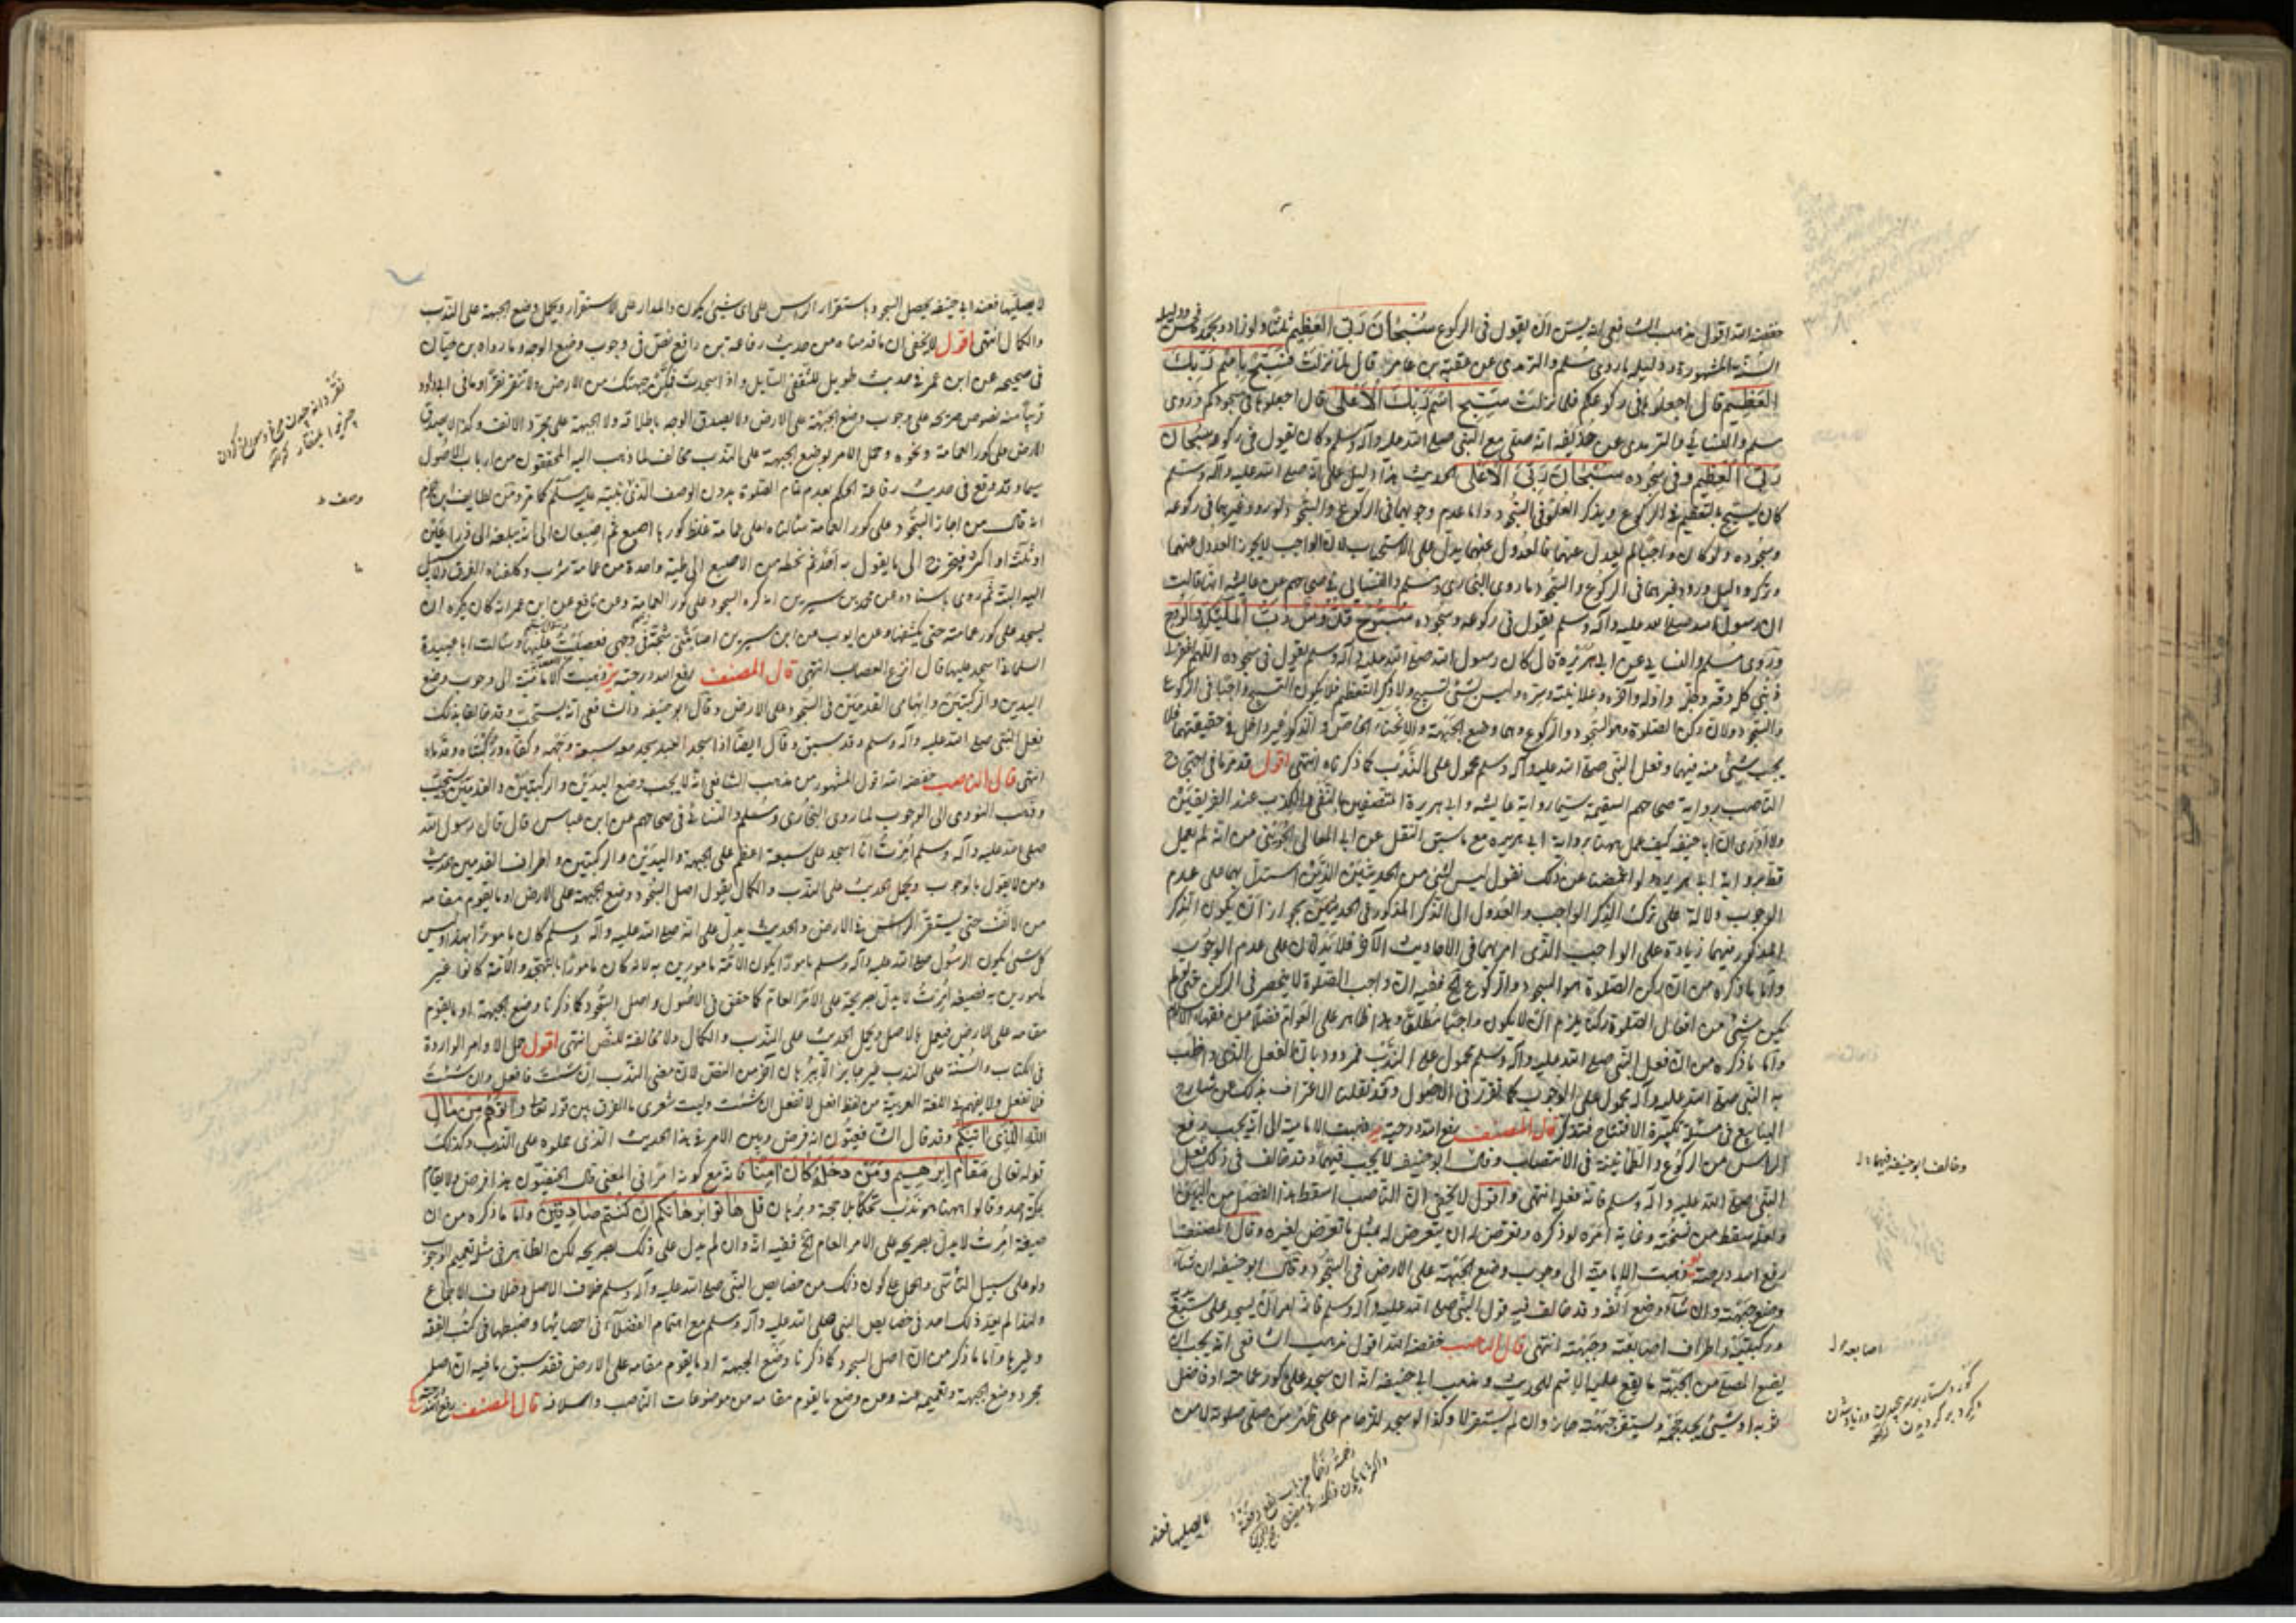 خفضه الله اقول مذهب الشافعي انه يسن ان يقول في الركوع سبحان ربي العظيم ثلثا ولو زاد وبحمده
السنة المشهورة ودليله ما روى مسلم والترمذي عن عقبة بن عامر قال لما نزلت فسبح باسم ربك
العظيم قال اجعلوها في ركوعكم فلما نزلت سبح اسم ربك الاعلى قال اجعلوها في سجودكم وروى
مسلم والنسائي والترمذي عن حذيفه انه صلى مع النبي صلى الله عليه وآله وسلم وكان يقول في ركوعه سبحان
ربي العظيم وفي سجوده سبحان ربي الاعلى الحديث هذا دليل على انه صلى الله عليه وآله وسلم
كان يسبح بالتعظيم في الركوع ويذكر العلو في السجود واما عدم وجوبهما في الركوع والسجود لورود غيرهما في ركوعه
وسجوده ولو كان واجبا لم يعدل عنهما فالعدول عنهما يدل على الاستحباب لان الواجب لا يجوز العدول عنها
وتركه ودليل ورود غيرهما في الركوع والسجود ما روى البخاري ومسلم والنسائي في صحاحهم عن عايشه انها قالت
ان رسول الله صلى الله عليه وآله وسلم يقول في ركوعه وسجوده سبوح قدوس رب الملئكة والروح
وروى مسلم والنسائي عن ابي هريره قال كان رسول الله صلى الله عليه وآله وسلم يقول في سجوده اللهم اغفر لي
ذنبي كله دقه وجله واوله وآخره وعلانيته وسره وليس شئ تسبيح ولا ذكر التعظيم فلا يكون التسبيح واجبا في الركوع
والسجود ولان ركن الصلوة هو السجود والركوع وهما وضع الجبهة والانحناء الخاص والذكر غير داخل في حقيقتهما فلا
يجب شئ منه فيهما وفعل النبي صلى الله عليه وآله وسلم محمول على الندب كما ذكرناه انتهى اقول قد مر ما في احتجاج
الناصب برواية صحاحهم السقيمة سيما رواية عايشه وابي هريرة المتصفين بالكذب عند الفريقين
ولا ادري ان ابا حنيفه كيف عمل ههنا برواية ابي هريره مع ما سبق النقل عن ابي المعالي الجويني من انه لم يعمل
قط برواية ابي هريره ولو اغمضنا عن ذلك نقول ليس لشئ من الحديثين الذين استدل بهما على عدم
الوجوب دلالة على ترك الذكر الواجب والعدول الى الذكر المذكور في الحديثين لجواز ان يكون الذكر
المذكور فيهما زيادة على الواجب الذي امر بهما في الاحاديث الآخر فلا يدلان على عدم الوجوب
واما ما ذكره من ان ركن الصلوة هو السجود والركوع الخ ففيه ان واجب الصلوة لا ينحصر في الركن حتى اذا لم
يكن شئ من افعال الصلوة ركنا يلزم ان لا يكون واجبا مطلقا وهذا ظاهر على العوام فضلا من فقهاء الاسلام
واما ما ذكره من ان فعل النبي صلى الله عليه وآله وسلم محمول على الندب فمردود بان الفعل الذي واظب
به النبي صلى الله عليه وآله محمول على الوجوب كما تقرر في الاصول وقد نقلنا الاعتراف بذلك عن شارح
الينابيع في مسئلة تكبيرة الافتتاح فتذكر قال المصنف رفع الله درجته يو ذهبت الامامية الى انه يجب رفع
الراس من الركوع والطمانينة في الانتصاب وقال ابو حنيفه لا يجب فيهما وقد خالف في ذلك فعل
النبي صلى الله عليه وآله وسلم فانه فعله انتهى واقول لا يخفى ان الناصب اسقط هذا الفصل من البين
ولعله سقط من نسخته وغاية امره لو ذكره وتعرض له ان يتعرض له بمثل ما تعرض لغيره وقال المصنف
رفع الله درجته يو ذهبت الامامية الى وجوب وضع الجبهة على الارض في السجود وقال ابو حنيفه ان شاء
وضع جبهته وان شاء وضع انفه وقد خالف فيه قول النبي صلى الله عليه وآله وسلم فانه امر ان يسجد على سبع
وركبتيه واطراف اصابعه وجبهته انتهى قال الناصب خفضه الله اقول مذهب الشافعي انه يجب ان
يضع المصلي من الجبهة ما يقع عليه الاسم للحديث ومذهب ابي حنيفه انه ان سجد على كور عمامته او فاضل
ثوبه او شئ يجد حجمه ويستقر جبهته جاز وان لم يستقر لا وكذا لو سجد للزحام على ظهر من صلى صلوته لا من
وخالف ابو حنيفه فيهما
اصابعه
لا يصليها فعند
لا يصليها فعند ابي حنيفه يحصل السجود باستقرار الراس على اي شئ يكون والمدار على الاستقرار ويحمل وضع الجبهة على الندب
والكمال انتهى اقول لا يخفى ان ما قدمناه من حديث رفاعة بن رافع نص في وجوب وضع الوجه وما رواه ابن حبان
في صحيحه عن ابن عمر في حديث طويل للثقفي السايل واذا سجدت فمكن جبهتك من الارض ولا تنقر نقرا وما في ابي داود
قريبا منه نصوص صريحة على وجوب وضع الجبهة على الارض ولا يصدق الوجه باطلاقه ولا الجبهة على مجرد الانف وكذا لا يصدق
الارض على كور العمامة ونحوه وحمل الامر بوضع الجبهة على الندب مخالف لما ذهب اليه المحققون من ارباب الاصول
سيما وقد وقع في حديث رفاعة الحكم بعدم تمام الصلوة بدون الوصف الذي بينه عليه السلم كما مر ومن لطايف ابن حزم
انه قال من اجاز السجود على كور العمامة سالناه على عمامة غلظ كورها اصبع ثم اصبعان الى ان نبلغه الى ذراعين
او ثلث او اكثر فيخرج الى ما يقول به احد ثم نحطه من الاصبع الى طية واحدة من عمامة شرب وكلفناه الفرق ولا سبيل
اليه البتة ثم روى باسناده عن محمد بن سيرين انه كره السجود على كور العمامة وعن نافع عن ابن عمر انه كان يكره ان
يسجد على كور عمامته حتى يكشفها وعن ايوب عن ابن سيرين اصابتني شجة في وجهي فعصبت عليها وسالت ابا عبيدة
السلماني اسجد عليها قال انزع العصاب انتهى قال المصنف رفع الله درجته يز ذهبت الامامية الى وجوب وضع
اليدين والركبتين وابهامي القدمين في السجود على الارض وقال ابو حنيفه والشافعي انه يستحب وقد خالفا بذلك
فعل النبي صلى الله عليه وآله وسلم وقد سبق وقال ايضا اذا سجد العبد سجد معه سبعة وجهه وكفاه وركبتاه وقدماه
انتهى قال الناصب خفضه الله اقول المشهور من مذهب الشافعي انه لا يجب وضع اليدين والركبتين والقدمين بل يستحب
وذهب النووي الى الوجوب لما روى البخاري ومسلم والنسائي في صحاحهم عن ابن عباس قال قال رسول الله
صلى الله عليه وآله وسلم امرت ان اسجد على سبعة اعظم على الجبهة واليدين والركبتين واطراف القدمين الحديث
ومن لا يقول بالوجوب ويحمل الحديث على الندب والكمال يقول اصل السجود وضع الجبهة على الارض او ما يقوم مقامه
من الانف حتى يستقر الراس في الارض والحديث يدل على انه صلى الله عليه وآله وسلم كان مامورا بهذا وليس
كل شئ يكون الرسول صلى الله عليه وآله وسلم مامورا يكون الامة مامورين به لانه كان مامورا بالتهجد والامة كانوا غير
مامورين به فصيغه امرت لا يدل بصريحه على الامر العام كما حقق في الاصول واصل السجود كما ذكرنا وضع الجبهة او ما يقوم
مقامه على الارض فيعمل بالاصل ويحمل الحديث على الندب والكمال ولا مخالفة للنص انتهى اقول حمل الاوامر الواردة
في الكتاب والسنة على الندب غير جايز الا ببرهان آخر من النص لان معنى الندب ان شئت فافعل وان شئت
فلا تفعل ولا يفهم في اللغة العربية من لفظ افعل لا تفعل ان شئت وليت شعري ما الفرق بين قوله تعالى وآتوهم من مال
الله الذي آتيكم وقد قال الشافعيون انه فرض وبين الامر في هذا الحديث الذي حملوه على الندب وكذلك
قوله تعالى مقام ابرهيم ومن دخله كان آمنا فانه مع كونه امرا في المعنى قال الحنفيون هذا فرض ولا يقام
بمكة حد وقالوا ههنا هو ندب تحكما بلا حجة وبرهان قل هاتوا برهانكم ان كنتم صادقين واما ما ذكره من ان
صيغة امرت لا يدل بصريحه على الامر العام الخ ففيه انه وان لم يدل على ذلك بصريحه لكن الظاهر في مثله تعميم الوجوب
ولو على سبيل التاسي والحمل على كون ذلك من خصايص النبي صلى الله عليه وآله وسلم خلاف الاصل وخلاف الاجماع
ولهذا لم يعد ذلك احد في خصايص النبي صلى الله عليه وآله وسلم مع اهتمام الفضلاء في احصائها وضبطها في كتب الفقه
وغيرها واما ما ذكر من ان اصل السجود كما ذكرنا وضع الجبهة او ما يقوم مقامه على الارض فقد سبق ما فيه ان اصله
مجرد وضع الجبهة وتعميمه عنه وعن وضع ما يقوم مقامه من موضوعات الناصب واسلافه قال المصنف رفع الله درجته
وصف